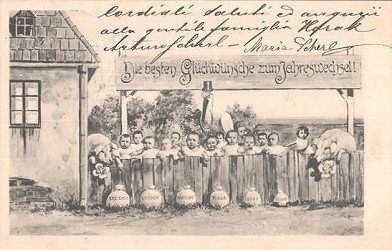 Cordiali saluti ed auguri
alla gentile famiglia Horak
Arturo Scherl. — Maria Scherl.
Die besten Glückwünsche zum Jahreswechsel!